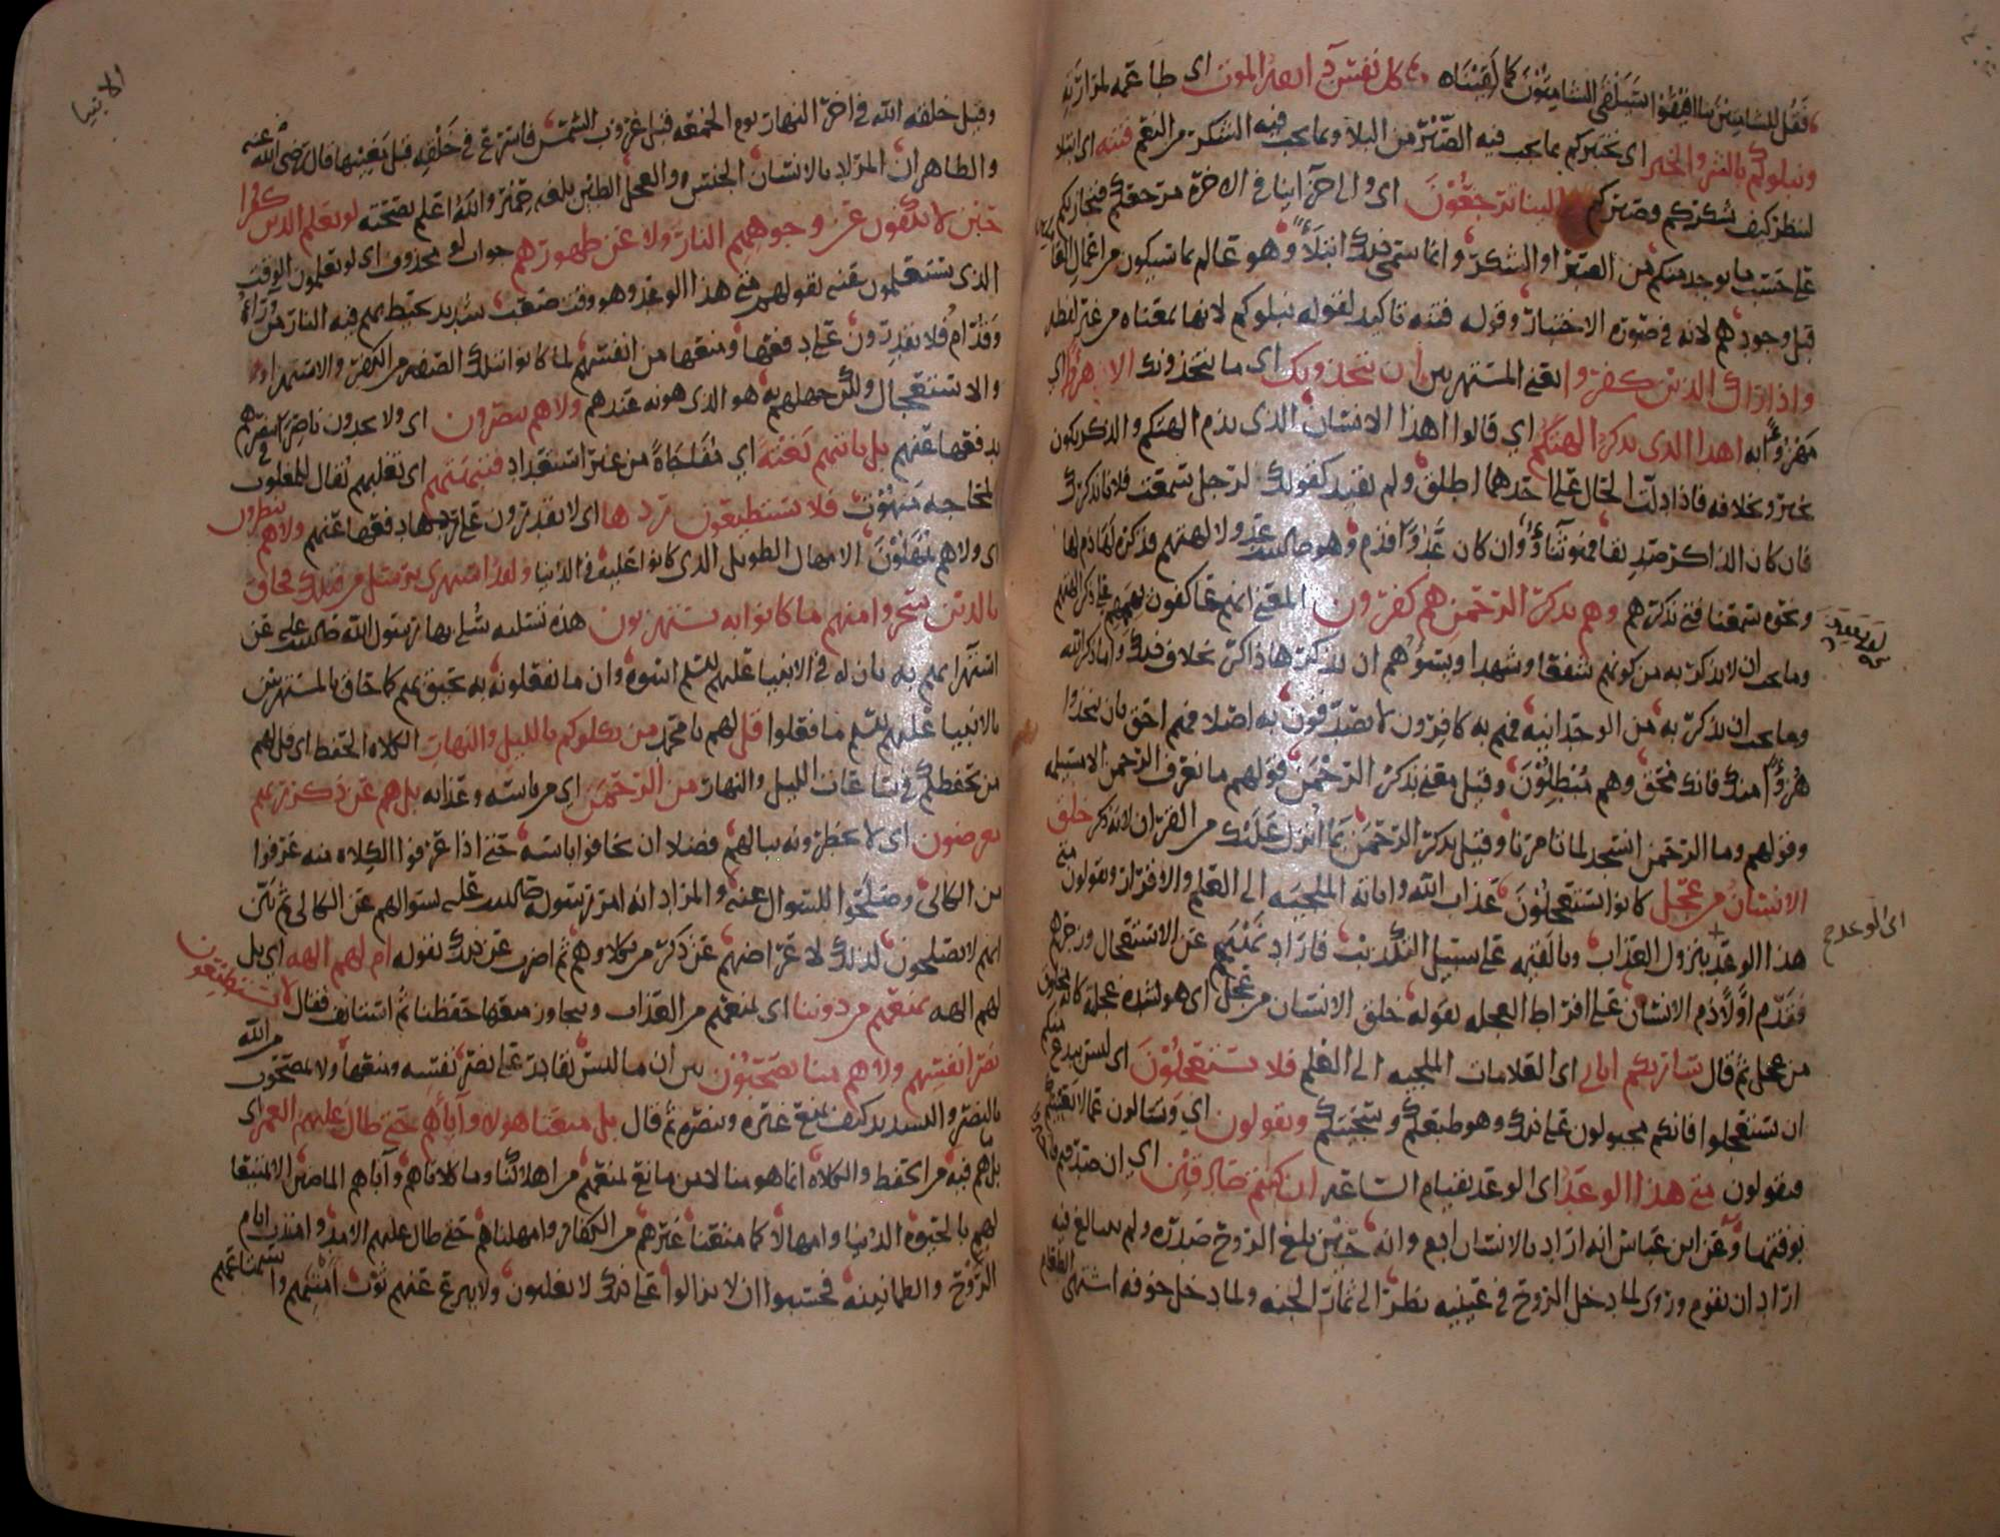 فقل للشامتين بنا افيقوا سيلقى الشامتون كما لقيناه كل نفس ذائقة الموت اى طاعمه لمرارته
ونبلوكم بالشر والخير اى نختبركم بما يجب فيه الصبر من البلا وبما يجب فيه الشكر من النعم فتنه اى ابتلا
لننظر كيف شكركم وصبركم والينا ترجعون اى والى جزاينا فى الاخرة مرجعكم فنجازيكم
على حسب ما يوجد منكم من الصبر او الشكر وانما سمى ذلك ابتلاء وهو عالم بما سيكون من اعمال العاملين
قبل وجودهم لانه فى صورة الاختبار وقوله فتنه تاكيد لقوله نبلوكم لانها بمعناه من غير لفظه
واذا راك الذين كفروا يعنى المستهزين ان يتخذونك اى ما يتخذونك الا هزؤا اى
مهزوءا به اهذا الذى يذكر الهتكم اى قالوا اهذا الانسان الذى يذم الهتكم والذكر يكون
بخير وبخلافه فاذا دلت الحال على احدهما اطلق ولم يقيد كقولك لرجل سمعت فلانا يذكرك
فان كان الذاكر صديقا فهو ثناء وان كان عدوا فذم وهو صلى الله عليه عدو لالهتهم فذكره لها ذم لها
ونحوه سمعنا فتى يذكرهم وهم بذكر الرحمن هم كفرون المعنى انهم عاكفون بهممهم على ذكر الهتهم
وما يجب ان لا يذكر به من كونهم شفعا وشهدا ويسوهم ان يذكرها ذاكر بخلاف ذلك واما ذكر الله
وما يجب ان يذكر به من الوحدانيه فهم به كافرون لا يصدقون به اصلا فهم احق بان يتخذوا
هزؤا منك فانك محق وهم مبطلون وقيل معنى بذكر الرحمن قولهم ما نعرف الرحمن الا مسيلمه
وقولهم وما الرحمن انسجد لما تامرنا وقيل بذكر الرحمن بما انزل عليك من القران لانه ذكر خلق
الانسان من عجل كانوا يستعجلون عذاب الله واياته الملجيه الى العلم والاقرار ويقولون متى
هذا الوعد بنزول العذاب وبالغته على سبيل التكذيب فاراد نهيهم عن الاستعجال وزجرهم
اى الوعد ح
فقدم اولا ذم الانسان على افراط العجله بقوله خلق الانسان من عجل اى هو لشدة عجلة كانه مخلوق
من عجل ثم قال ساريكم اياتى اى العلامات الملجيه الى العلم فلا تستعجلون اى ليس ببدع منكم
ان تستعجلوا فانكم مجبولون على ذلك وهو طبعكم وسجيتكم ويقولون اى ويسالون عما لا يعنيهم
فيقولون متى هذا الوعد اى الوعد بقيام الساعه ان كنتم صادقين اى ان صدقتم
بوقتها وعن ابن عباس انه اراد بالانسان ادم وانه حين بلغ الروح صدره ولم يبالغ فيه
اراد ان يقوم وروى لما دخل الروح فى عينيه نظر الى ثمار الجنه ولما دخل جوفه اشتهى الطعام
الانبيا
وقيل خلقه الله فى اخر النهار يوم الجمعه قبل غروب الشمس فاسرع فى خلقه قبل مغيبها قال رضى الله عنه
والظاهر ان المراد بالانسان الجنس والعجل الطين بلغه حمير والله اعلم بصحته لو يعلم الذين كفروا
حين لا يكفون عن وجوههم النار ولا عن ظهورهم جواب لو محذوف اى لو يعلمون الوقت
الذى يستعلمون عنه بقولهم متى هذا الوعد وهو وقت صعب شديد تحيط بهم فيه النار من وراء
وقدام فلا يقدرون على دفعها ومنعها من انفسهم لما كانوا بتلك الصفه من الكفر والاستهزاء
والاستعجال ولكن جهلهم به هو الذى هونه عندهم ولا هم ينصرون اى ولا يجدون ناصرا ينصرهم فى
يدفعها عنهم بل تاتيهم بغتة اى مفاجاة من غير استعداد فتبهتهم اى تغلبهم يقال للمغلوب
المحاجه مبهوت فلا يستطيعون ردها اى لا يقدرون على ردها دفعها عنهم ولا هم ينظرون
اى ولا هم يمهلون الامهال الطويل الذى كانوا عليه فى الدنيا ولقد استهزى برسل من قبلك فحاق
بالذين سخروا منهم ما كانوا به يستهزيون هذه تسليه سلى بها رسول الله صلى الله عليه عن
استهزايهم به بان له فى الانبيا عليهم السلم اسوه وان ما يفعلونه به يحيق بهم كما حاق بالمستهزين
بالانبيا عليهم السلم ما فعلوا قل لهم يا محمد من يكلوكم بالليل والنهار الكلاه الحفظ اى قل لهم
من يحفظكم فى ساعات الليل والنهار من الرحمن اى من باسه وعذابه بل هم عن ذكر ربهم
معرضون اى لا يخطرونه ببالهم فضلا ان يخافوا باسه حتى اذا عرفوا الكلاه منه عرفوا
من الكالى وصلحوا للسوال عنه والمراد انه امر رسوله صلى الله عليه بسوالهم عن الكالى ثم بين
انهم لا يصلحون لذلك لاعراضهم عن ذكر من يكلاوهم ثم اضرب عن ذلك بقوله ام لهم الهه اى بل
لهم الهه تمنعهم من دوننا اى تمنعهم من العذاب وتجاوز منعها حفظنا ثم استانف فقال لا يستطيعون
نصر انفسهم ولا هم منا يصحبون بين ان ما ليس بقادر على نصر نفسه ومنعها ولا بمصحوب من الله
بالنصر والتسديد كيف يمنع غيره وينصره ثم قال بل متعنا هولا واباءهم حتى طال عليهم العمر اى
ما هم فيه من الحفظ والكلاه انما هو منا لا من مانع يمنعهم من اهلاكنا وما كلاناهم وآباهم الماضين الا تمتيعا
لهم بالحيوه الدنيا وامهالا كما متعنا غيرهم من الكفار وامهلناهم حتى طال عليهم الامد وامتدت ايام
الروح والطمانينه فحسبوا ان لا يزالوا على ذلك لا يغلبون ولا ينزع عنهم ثوب امنهم واستمتاعهم